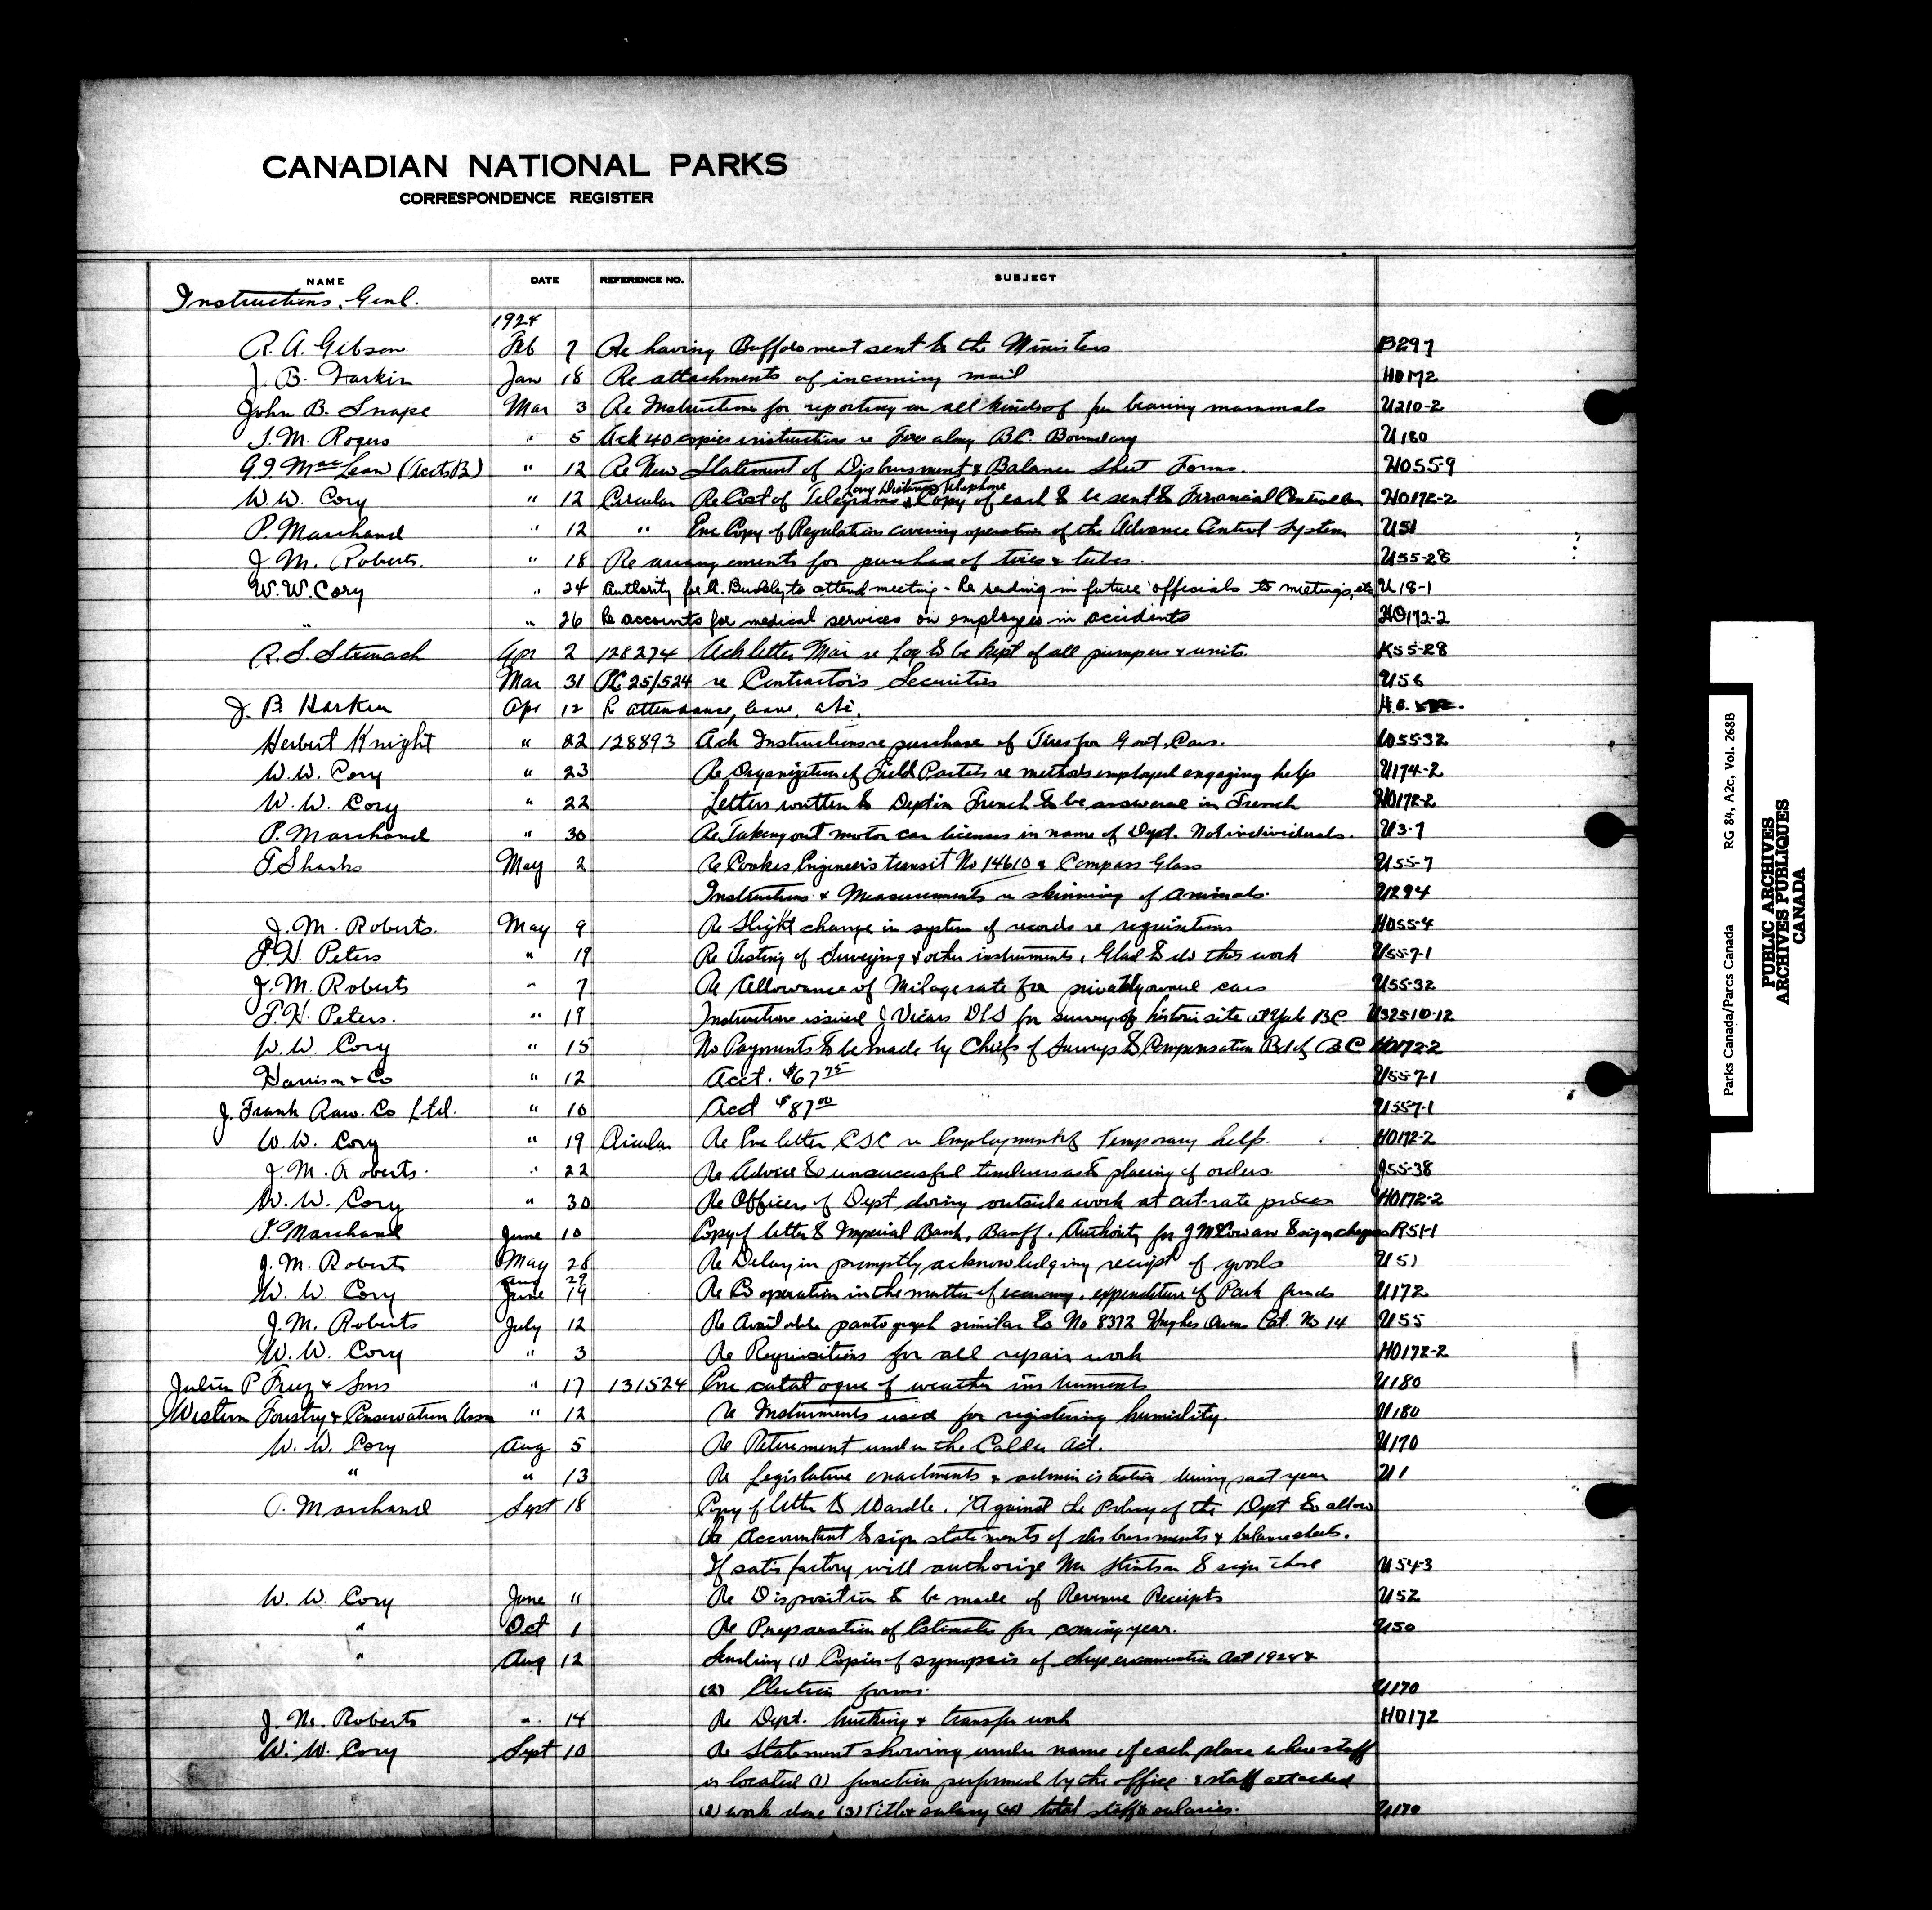 CANADIAN NATIONAL PARKS
CORRESPONDENCE REGISTER
NAME DATE REFERENCE NO. SUBJECT
Instructions, Genl.
1924
R. A. Gibson Feb 7 Re having Buffalo meat sent to the Ministers B297
J. B. Harkin Jan 18 Re attachments of incoming mail HO172
John B. Snape Mar 3 Re Instructions for reporting on all kinds of fur bearing mammals U210-2
S. M. Rogers " 5 Ack 40 copies instructions re Fires along B.C. Boundary U180
G. I. MacLean (Accts B) " 12 Re New Statement of Disbursment & Balance Sheet Forms. HO55-9
Long Distance Telephone
W. W. Cory " 12 Circular Re Cost of Telegrams & Copy of each to be sent to Financial Controller HO172-2
P. Marchand " 12 " Enc Copy of Regulations covering operation of the Advance Control System U51
J. M. Roberts. " 18 Re arrangements for purchase of tires & tubes. U55-28
W. W. Cory " 24 Authority for A. to attend meeting - Re sending in future officials to meetings, etc U18-1
" " 26 Re accounts for medical services on employees in accidents HO172-2
R. S. Stronach Apr 2 128274 Ack letter Mar re Log to be kept of all pumpers & units. K55-28
Mar 31 PC 25/524 re Contractors Securities U56
J. B. Harkin Apr 12 R attendance, leave, etc. H.O.
Herbert Knight " 22 128893 Ack Instructions re purchase of Tires for Govt. Cars. U55-32
W. W. Cory " 23 Re Organization of Field Parties re methods employed engaging help U174-2
W. W. Cory " 22 Letters written to Dept in French to be answered in French HO172-2
P. Marchand " 30 Re Taking out motor car licenses in name of Dept. Not individuals. U3-7
T. Shanks May 2 Re Cookes Engineers transit No 14610 & Compass Glass U55-7
Instructions & Measurements re skinning of animals. U294
J. M. Roberts. May 9 Re Slight change in system of records re requisitions HO55-4
F. H. Peters " 19 Re Testing of Surveying & other instruments. Glad to do this work U55-7-1
J. M. Roberts " 7 Re Allowance of Milage rate for privately owned cars U55-32
F. H. Peters. " 19 Instructions issued J Vicars DLS for survey of historic site at Yale BC U325-10-12
W. W. Cory " 15 No Payments to be made by Chiefs of Surveys to Compensation Bd of BC HO172-2
Harrison & Co " 12 Acct. $67 75 U55-7-1
J. Frank Raw. Co Ltd. " 10 Acct $87 00 U557-1
W. W. Cory " 19 Circular Re Enc letter CSC re Employment of Temporary help. HO172-2
J. M. Roberts. " 22 Re Advice to unsuccessful tenderers as to placing of orders. J55-38
W. W. Cory " 30 Re Officers of Dept doing outside work at cut-rate prices HO172-2
P. Marchand June 10 Copy of letter to Imperial Bank, Banff. Authority for J McCowan to sign cheques R51-1
J. M. Roberts May 28 Re Delay in promptly acknowledging receipt of goods U51
Aug 29
W. W. Cory June 19 Re Co operation in the matter of economy, expenditure of Park funds U172
J. M. Roberts July 12 Re Available pantograph similar to No 8372 Hughes Owens Cat. No 14 U55
W. W. Cory " 3 Re Requisitions for all repair work HO172-2
Julien P Friez & Sons " 17 131524 Enc catalogue of weather instruments U180
Western Forestry & Conservation Assn " 12 Re Instruments used for registering humidity. U180
W. W. Cory Aug 5 Re Retirement under the Calder Act. U170
" " 13 Re Legislative enactments & administration during past year U1
P. Marchand Sept 18 Copy of letter to Wardle. "Against the policy of the Dept to allow
the Accountant to sign statements of disbursments & balance sheets.
If satisfactory will authorize Mr to sign these U54-3
W. W. Cory June 11 Re Disposition to be made of Revenue Receipts U52
" Oct 1 Re Preparation of Estimates for coming year. U50
" Aug 12 Sending (1) Copies of synopsis of Superannuation Act 1924 &
(2) Election forms. U170
J. M. Roberts " 14 Re Dept. trucking & transfer work HO172
W. W. Cory Sept 10 Re Statement showing under name of each place where staff
is located (1) function performed by the office & staff attached
(2) work done (3) Title & salary (4) total staff & salaries. U170
Parks Canada/Parcs Canada RG 84, A2c, Vol. 268B
PUBLIC ARCHIVES
ARCHIVES PUBLIQUES
CANADA